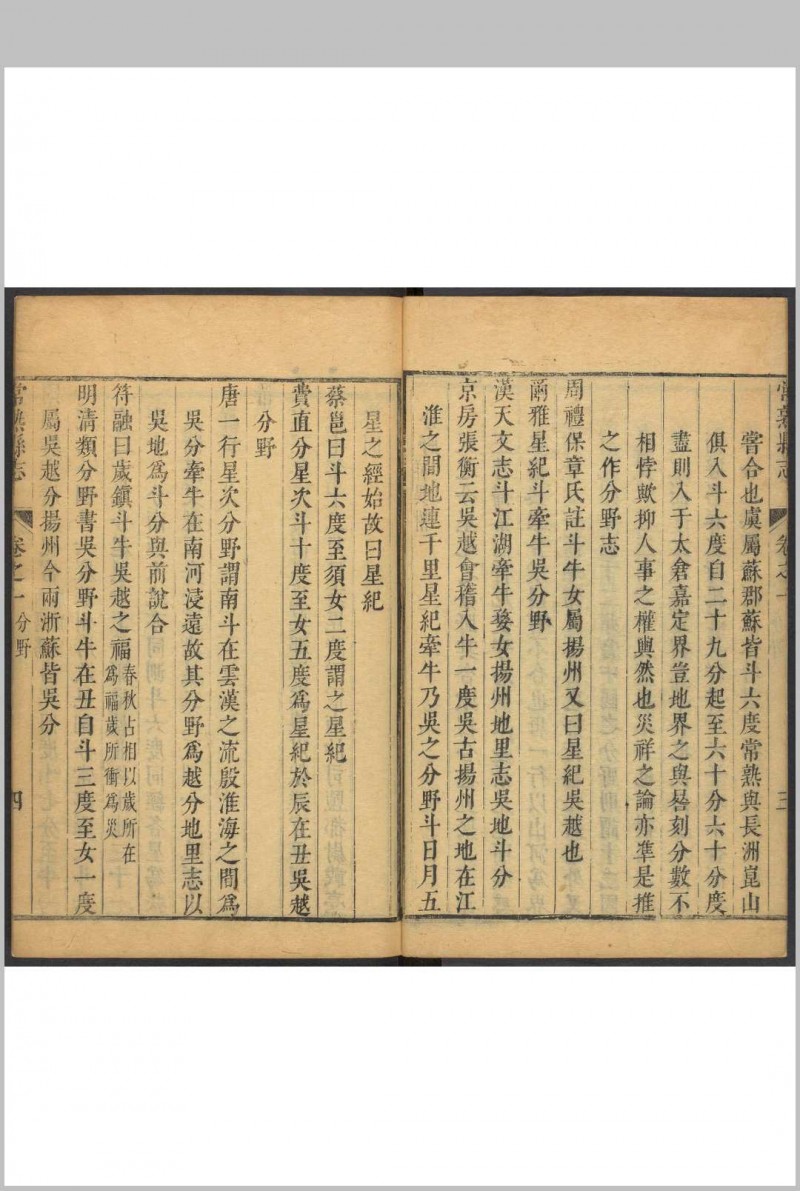 常熟縣志
卷之一
三
嘗合也虞屬蘇郡蘇皆斗六度常熟與長洲崑山
俱入斗六度自二十九分起至六十分六十分度
盡則入于太倉嘉定界豈地界之與晷刻分數不
相悖歟抑人事之權輿然也災祥之論亦凖是推
之作分野志
周禮保章氏註斗牛女屬揚州又曰星紀吳越也
爾雅星紀斗牽牛吳分野
漢天文志斗江湖牽牛婺女揚州地里志吳地斗分
京房張衡云吳越會稽入牛一度吳古揚州之地在江
淮之間地連千里星紀牽牛乃吳之分野斗日月五
星之經始故曰星紀
蔡邕曰斗六度至須女二度謂之星紀
費直分星次斗十度至女五度爲星紀於辰在丑吳越
分野
唐一行星次分野謂南斗在雲漢之流殷淮海之間爲
吳分牽牛在南河浸遠故其分野爲越分地里志以
吳地爲斗分與前說合
符融曰歲鎭斗牛吳越之福春秋占相以歲所在
爲福歲所衝爲災
明清類分野書吳分野斗牛在丑自斗三度至女一度
屬吳越分揚州今兩浙蘇皆吳分
常熟縣志
卷之一
分野
四